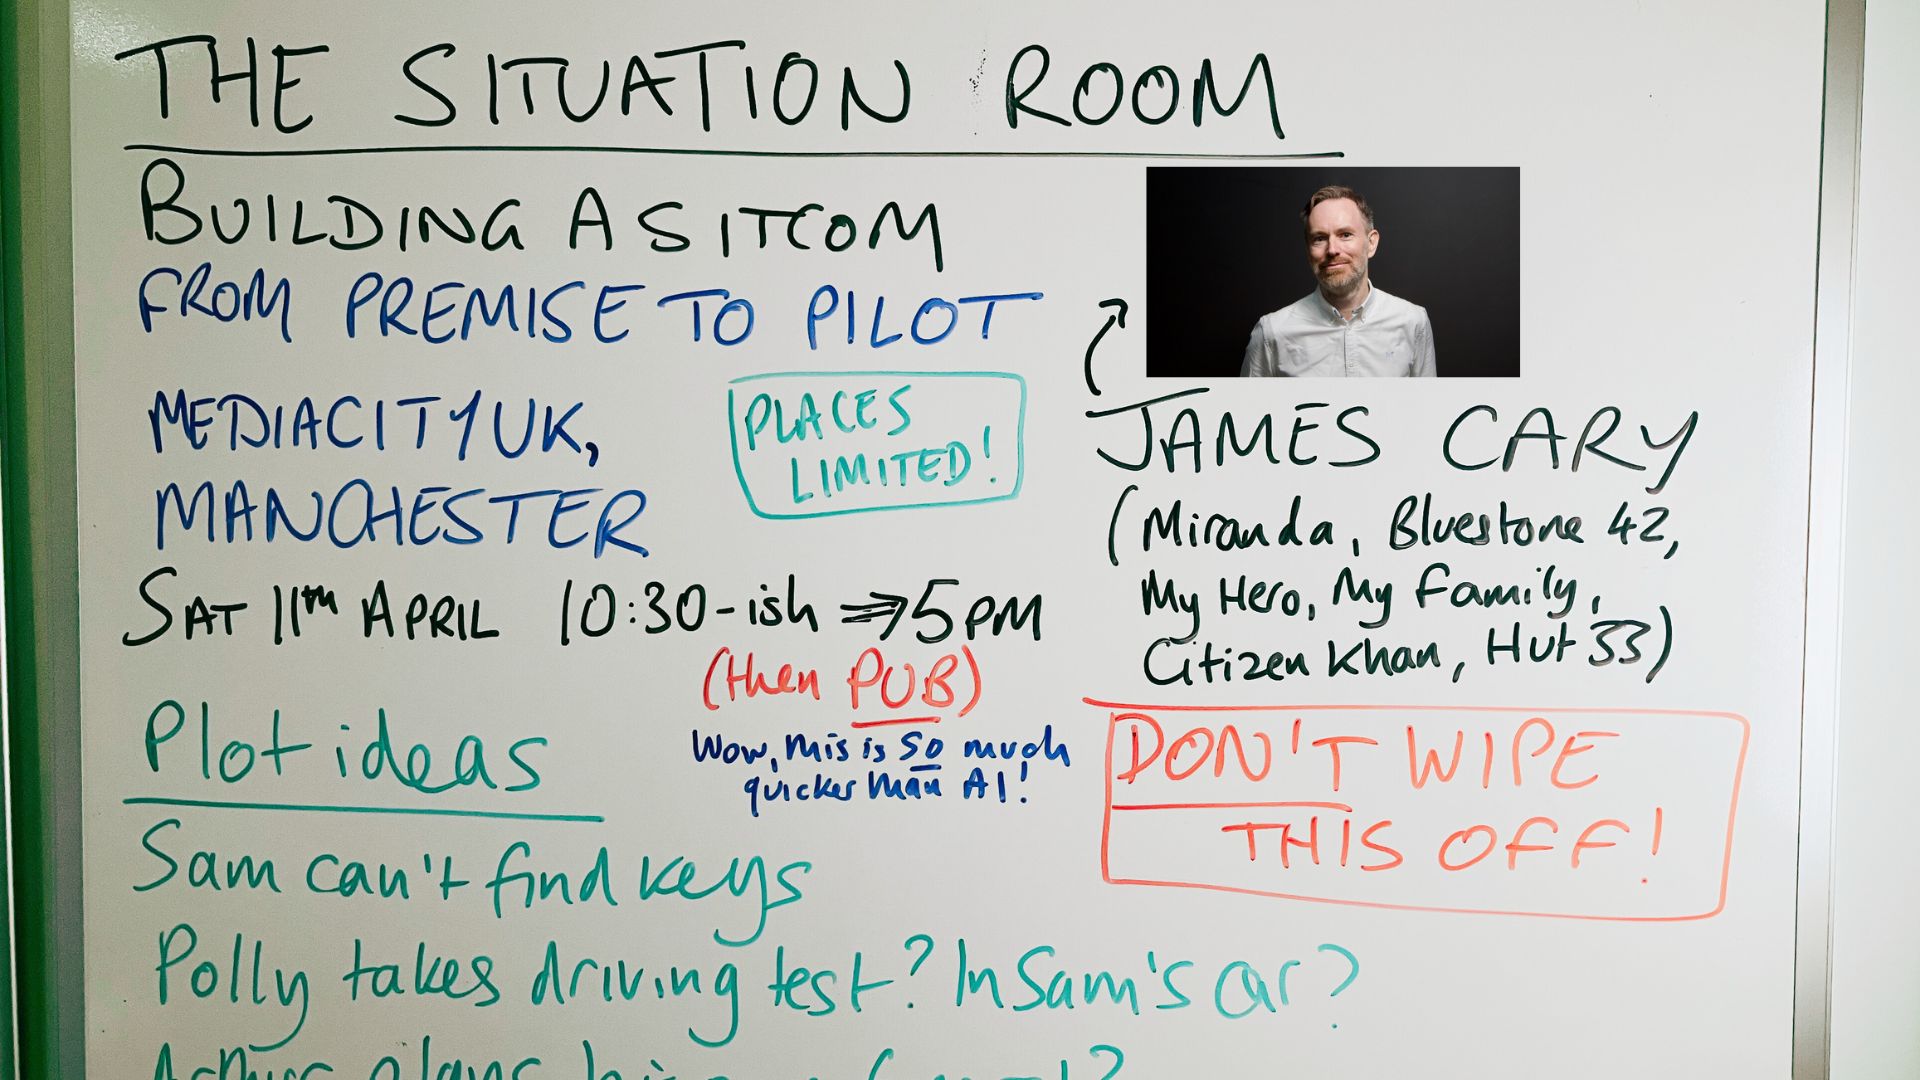 THE SITUATION ROOM
BUILDING A SITCOM
FROM PREMISE TO PILOT
MEDIACITYUK,
MANCHESTER
PLACES
LIMITED!
SAT 11th APRIL 10:30-ish ⇒ 5PM
(then PUB)
Wow, this is so much
quicker than AI!
JAMES CARY
(Miranda, Bluestone 42,
My Hero, My Family,
Citizen Khan, Hut 33)
DON'T WIPE
THIS OFF!
Plot ideas
Sam can't find keys
Polly takes driving test? In Sam's car?
plans